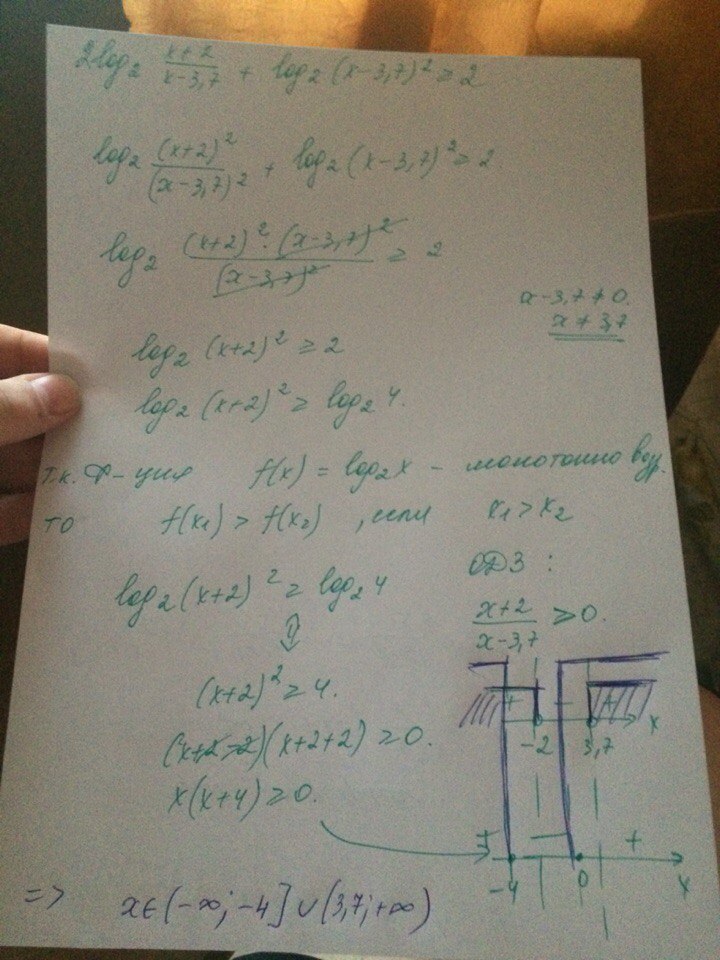 2log₂ (x+2)/(x-3,7) + log₂(x-3,7)² ≥ 2
log₂ (x+2)²/(x-3,7)² + log₂(x-3,7)² ≥ 2.
log₂ ((x+2)²·(x-3,7)²)/(x-3,7)² ≥ 2
x-3,7≠0.
x≠3,7
log₂ (x+2)² ≥ 2
log₂ (x+2)² ≥ log₂4.
т.к. ф-ция f(x) = log₂x - монотонно возр.
то f(x₁) > f(x₂), если x₁>x₂
ОДЗ:
log₂(x+2)² ≥ log₂4
(x+2)/(x-3,7) ≥ 0.
⇕
(x+2)² ≥ 4.
(x+2-2)(x+2+2) ≥ 0.
x(x+4) ≥ 0.
+ - + x
-2 3,7
+ - +
-4 0 x
=> x∈(-∞; -4]∪(3,7; +∞)